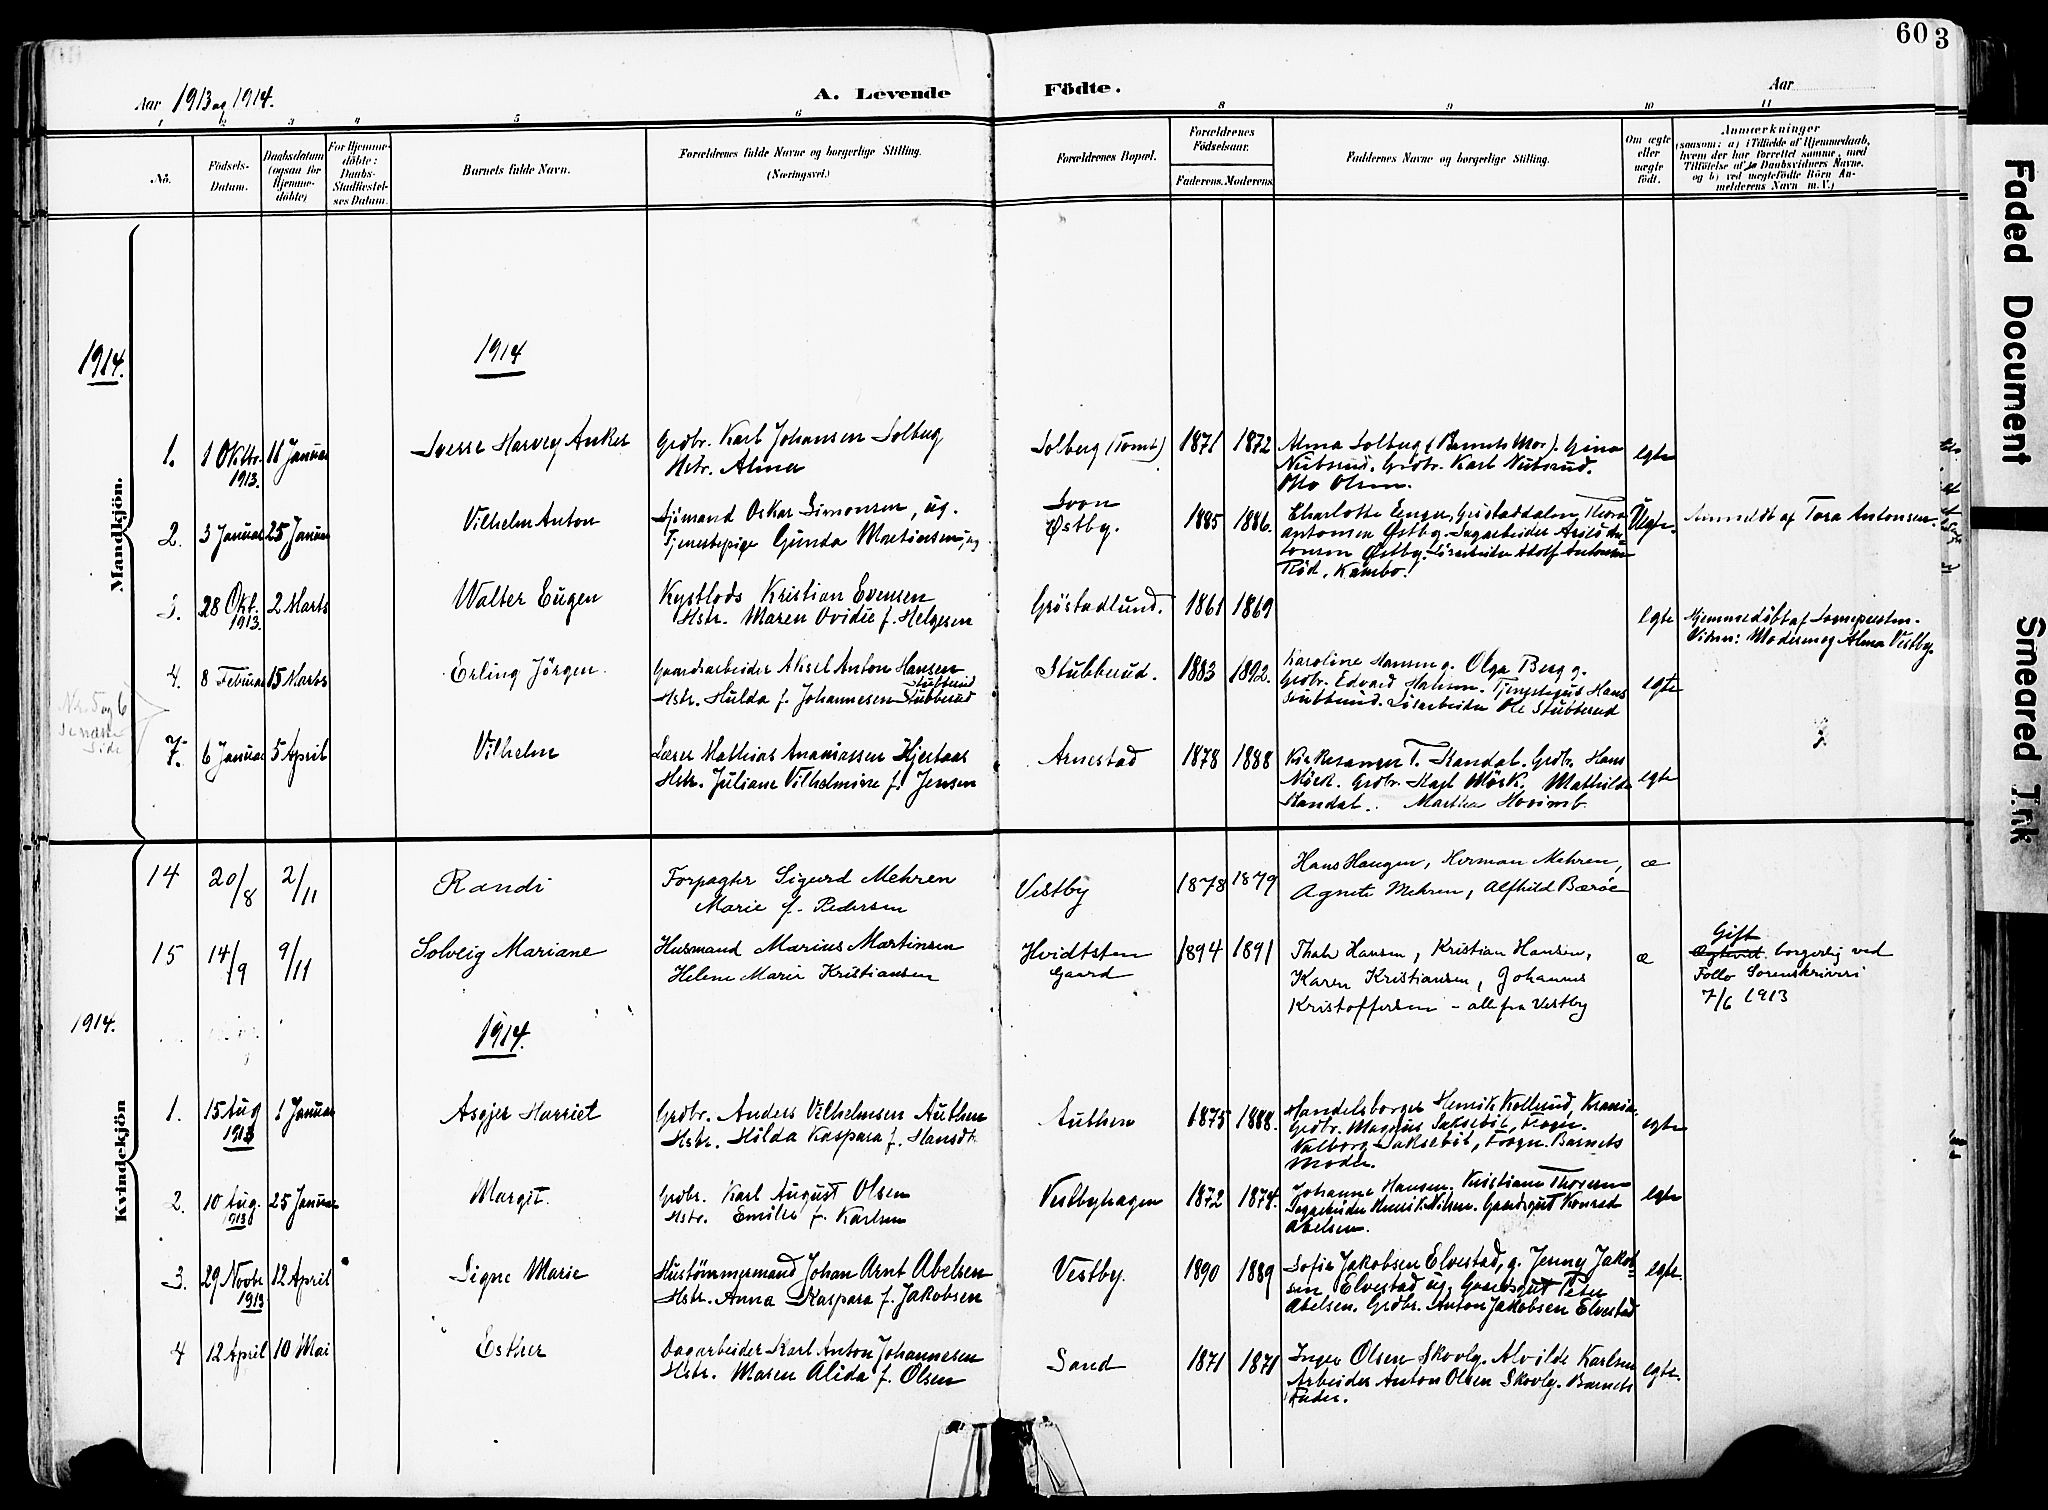 60 3
Aar 1913 og 1914.
A. Levende Födte.
Aar
1 2 3 4 5 6 8 9 10 11
No.
Födsels-Datum.
Daabsdatum (ogsaa for Hjemmedöbte)
For Hjemmedöbte: Daabs-Stadfæstelses Datum.
Barnets fulde Navn.
Forældrenes fulde Navne og borgerlige Stilling.
(Næringsvei.)
Forældrenes Bopæl.
Forældrenes Födselsaar.
Faderens. Moderens.
Faddernes Navne og borgerlige Stilling.
Om ægte eller uægte födt.
Anmærkninger
(saasom: a) i Tilfælde af Hjemmedaab,
hvem der har forrettet samme, med
Tilföielse af to Daabsvidners Navne,
og b) ved uægtefödte Börn An-
melderens Navn m. V.)
1914.
1914
Mandkjön.
1. 1 Oktbr. 1913. 11 Januar
Sverre Harvey Anker
Grdbr. Karl Johansen Solberg
Hstr. Alma
Solberg (Tomt)
1871 1872
Alma Solberg (Barnets Mor). Gina
Grdbr. Karl
Otto Olsen.
egte
2. 3 Januar 25 Januar
Vilhelm Anton
Sjömand Oskar Simonsen, ug.
Tjenestepige Gunda Martinsen, ug
Soon
Østby.
1885 1886.
Charlotte Enger, Thora
Antonsen Østby. An-
tonsen Østby. Lösarbeider Adolf Antonsen
Röd, Kambo.
Uegte.
Anmeldt af Tora Antonsen.
3. 28 Okt. 1913. 2 Marts
Walter Eugen
Kystlods Kristian Evensen
Hstr. Maren Ovidie f. Helgesen
Gröstadlund.
1861 1869
egte
Hjemmedöbt af Sognepresten.
Vidner: Moderen og Alma Vestby.
4. 8 Februar 15 Marts
Erling Jörgen.
Gaardsarbeider Aksel Anton Hansen
Stubberud
Hstr. Hulda f. Johannesen Stubberud
Stubberud.
1883 1892.
Karoline Hansen g. Olga Berg g.
Grdbr. Edvard Hansen. Tjenestegut Hans
Stubberud. Lösarbeider Ole Stubberud
egte
Nr. 5 og 6
næste
Side
7. 6 Januar 5 April
Vilhelm
Lærer Mathias Ananiassen Hjertaas
Hstr. Juliane Vilhelmine f. Jensen
Arnestad
1878 1888
Kirkesanger T. Kandal. Grdbr. Hans
Mörk. Grdbr. Karl Mörk. Mathilde
Kandal. Martha
egte
14 20/8 2/11
Randi
Forpagter Sigurd Mehren
Marie f. Pedersen
Vestby
1878 1879
Hans Haugen, Herman Mehren,
Agnete Mehren, Alfhild Bæröe
æ
15 14/9 9/11
Solveig Mariane
Husmand Marius Martinsen
Helene Marie Kristiansen
Hvidtsten
Gaard
1894 1891
Thale Hansen, Kristian Hansen,
Karen Kristiansen, Johannes
Kristoffersen - alle fra Vestby
æ
Gift
borgerlig ved
Follo Sorenskriveri
7/6 1913
1914.
1914.
Kvindekjön
1. 15 Aug 1913 1 Januar
Asgjer Harriet
Grdbr. Anders Vilhelmsen Authen
Hstr. Hilda Kaspara f. Hansdt.
Authen
1875 1888.
Handelsborger Henrik Kollerud, Krania.
Grdbr. Magnus Saksebøl, Frogn.
Valborg Saksebøl, Frogn. Barnets
Moder.
egte
2. 10 Aug. 1913 25 Januar
Margit.
Grdbr. Karl August Olsen
Hstr. Emilie f. Karlsen
Vestbyhagen
1872 1874.
Johanne Hansen. Kristiane Thoresen
Sagarbeider Henrik Nilsen. Gaardsgut Konrad
Abelsen.
egte
3. 29 Novbr 1913 12 April
Signe Marie
Hustömmermand Johan Arnt Abelsen
Hstr. Anna Kaspara f. Jakobsen
Vestby.
1890 1889
Sofie Jakobsen Elvestad, g. Jenny Jakob-
sen, Elvestad ug. Gaardsgut Peter
Abelsen. Grdbr. Anton Jakobsen Elvestad
egte.
4 12 April 10 Mai
Esther
Dagarbeider Karl Anton Johannesen
Hstr. Maren Alida f. Olsen
Sand
1871 1871
Inger Olsen Skovlg. Alvilde Karlsen
Arbeider Anton Olsen Skovlg. Barnets
Fader.
egte.
Faded Document
Smeared Ink